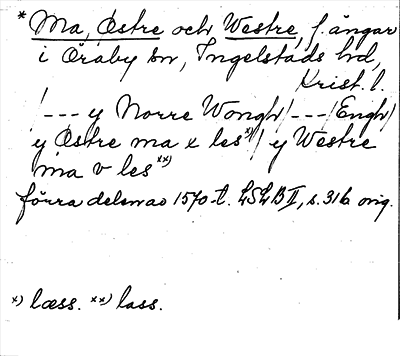 * Ma, Östre och Westre, f. ängar
i Öraby sn, Ingelstads hd,
Krist. l.
/--- y Norre Wongh/---/Engh/
y Östre ma x les x)// y Westre
ma v les xx)
förra delen av 1570-t. LSLB II, s. 316 orig.
x) læss. xx) lass.